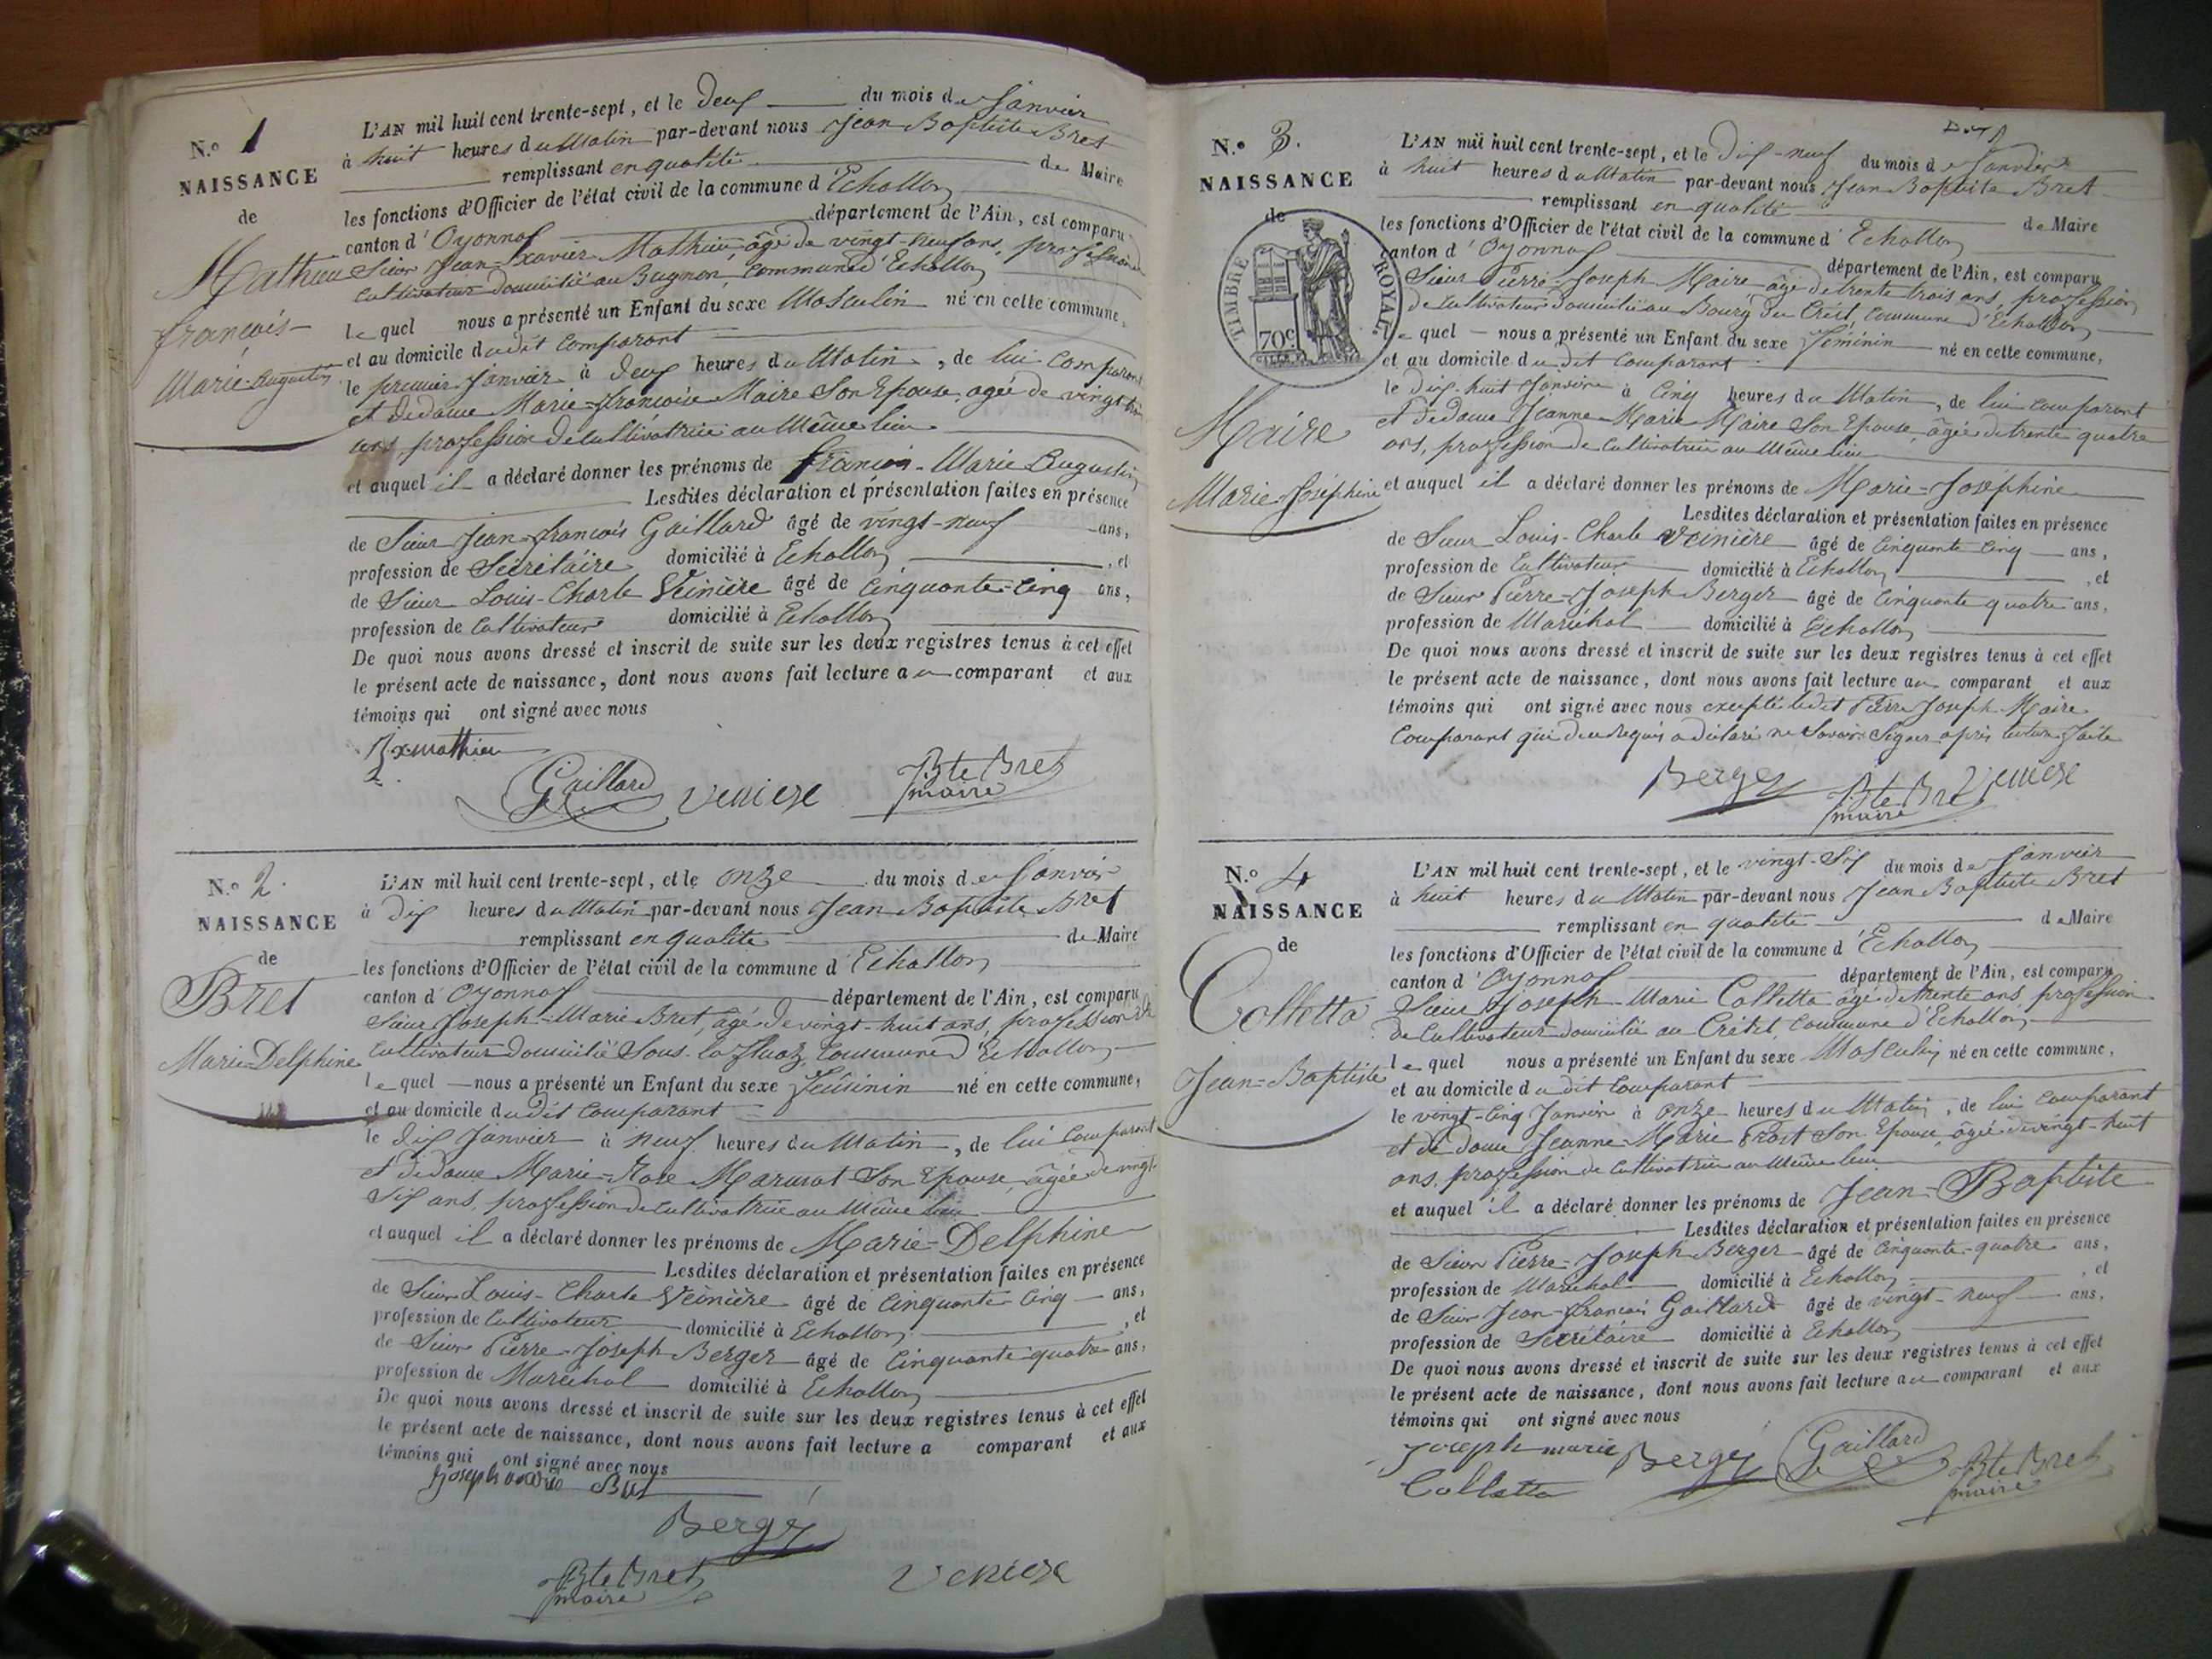 N.o 1
NAISSANCE
de
Mathieu
françois-
Marie-Augustin
L'AN mil huit cent trente-sept, et le deux du mois de Janvier
à huit heures du Matin par-devant nous Jean Baptiste Bret
remplissant en qualité de Maire
les fonctions d'Officier de l'état civil de la commune d'Echallon
canton d'Oyonnax département de l'Ain, est comparu
Sieur Jean-Xavier Mathieu, âgé de vingt-neuf ans, profession de
Cultivateur domicilié au Bugnon, Commune d'Echallon
le quel nous a présenté un Enfant du sexe Masculin né en cette commune,
et au domicile dudit Comparant
le premier Janvier à deux heures du Matin, de lui Comparant
et de dame Marie-françoise Maire Son Epouse, agée de vingt
ans, profession de Cultivatrice au Même lieu
et auquel il a déclaré donner les prénoms de françois-Marie Augustin
Lesdites déclaration et présentation faites en présence
de Sieur Jean-françois Gaillard âgé de vingt-neuf ans,
profession de Secrétaire domicilié à Echallon, et
de Sieur Louis-Charle Veinière âgé de Cinquante-Cinq ans,
profession de Cultivateur domicilié à Echallon
De quoi nous avons dressé et inscrit de suite sur les deux registres tenus à cet effet
le présent acte de naissance, dont nous avons fait lecture au comparant et aux
témoins qui ont signé avec nous
J.x. mathieu
Gaillard Veniere Bte Bret
maire
N.o 2.
NAISSANCE
de
Bret
Marie-Delphine
L'AN mil huit cent trente-sept, et le onze du mois de Janvier
à dix heures du Matin par-devant nous Jean Baptiste Bret
remplissant en qualité de Maire
les fonctions d'Officier de l'état civil de la commune d'Echallon
canton d'Oyonnax département de l'Ain, est comparu
Sieur Joseph-Marie Bret, âgé de vingt-huit ans, profession de
Cultivateur domicilié Sous la Commune d'Echallon
le quel nous a présenté un Enfant du sexe Féminin né en cette commune,
et au domicile dudit Comparant
le dix Janvier à neuf heures du Matin, de lui Comparant
et de dame Marie-Rose Marmot Son Epouse, âgée de vingt-
Six ans, profession de Cultivatrice au Même lieu
et auquel il a déclaré donner les prénoms de Marie-Delphine
Lesdites déclaration et présentation faites en présence
de Sieur Louis-Charle Veinière âgé de Cinquante Cinq ans,
profession de Cultivateur domicilié à Echallon, et
de Sieur Pierre-Joseph Berger âgé de Cinquante quatre ans,
profession de Maréchal domicilié à Echallon
De quoi nous avons dressé et inscrit de suite sur les deux registres tenus à cet effet
le présent acte de naissance, dont nous avons fait lecture a comparant et aux
témoins qui ont signé avec nous
Joseph marie Bret
Berger
Bte Bret Veniere
maire
N.o 3.
NAISSANCE
de
TIMBRE ROYAL.
70c
Maire
Marie-Joséphine
L'AN mil huit cent trente-sept, et le dix-neuf du mois de Janvier
à huit heures du Matin par-devant nous Jean Baptiste Bret
remplissant en qualité de Maire
les fonctions d'Officier de l'état civil de la commune d'Echallon
canton d'Oyonnax département de l'Ain, est comparu
Sieur Pierre-Joseph Maire âgé de trente trois ans, profession
de Cultivateur domicilié au Bourg du Crêt, Commune d'Echallon
le quel nous a présenté un Enfant du sexe Féminin né en cette commune,
et au domicile dudit Comparant
le dix-huit Janvier à Cinq heures du Matin, de lui Comparant
et de dame Jeanne-Marie Maire Son Epouse, âgée de trente quatre
ans, profession de Cultivatrice au Même lieu
et auquel il a déclaré donner les prénoms de Marie-Joséphine
Lesdites déclaration et présentation faites en présence
de Sieur Louis-Charle Veinière âgé de Cinquante Cinq ans,
profession de Cultivateur domicilié à Echallon, et
de Sieur Pierre-Joseph Berger âgé de Cinquante quatre ans,
profession de Maréchal domicilié à Echallon
De quoi nous avons dressé et inscrit de suite sur les deux registres tenus à cet effet
le présent acte de naissance, dont nous avons fait lecture au comparant et aux
témoins qui ont signé avec nous excepté ledit Pierre Joseph Maire
Comparant qui de ce requis a déclaré ne Savoir Signer après lecture faite
Berger Bte Bret Veniere
maire
N.o 4
NAISSANCE
de
Colletta
Jean-Baptiste
L'AN mil huit cent trente-sept, et le vingt-Six du mois de Janvier
à huit heures du Matin par-devant nous Jean Baptiste Bret
remplissant en qualité de Maire
les fonctions d'Officier de l'état civil de la commune d'Echallon
canton d'Oyonnax département de l'Ain, est comparu
Sieur Joseph-Marie Colletta âgé de trente ans, profession
de Cultivateur domicilié au Crétet, Commune d'Echallon
le quel nous a présenté un Enfant du sexe Masculin né en cette commune,
et au domicile dudit Comparant
le vingt-Cinq Janvier à onze heures du Matin, de lui Comparant
et de dame Jeanne-Marie Prost Son Epouse, âgée de vingt-huit
ans, profession de Cultivatrice au Même lieu
et auquel il a déclaré donner les prénoms de Jean-Baptiste
Lesdites déclaration et présentation faites en présence
de Sieur Pierre-Joseph Berger âgé de Cinquante-quatre ans,
profession de Maréchal domicilié à Echallon, et
de Sieur Jean-françois Gaillard âgé de vingt-neuf ans,
profession de Secrétaire domicilié à Echallon
De quoi nous avons dressé et inscrit de suite sur les deux registres tenus à cet effet
le présent acte de naissance, dont nous avons fait lecture au comparant et aux
témoins qui ont signé avec nous
Joseph marie Berger Gaillard Bte Bret
Colletta maire